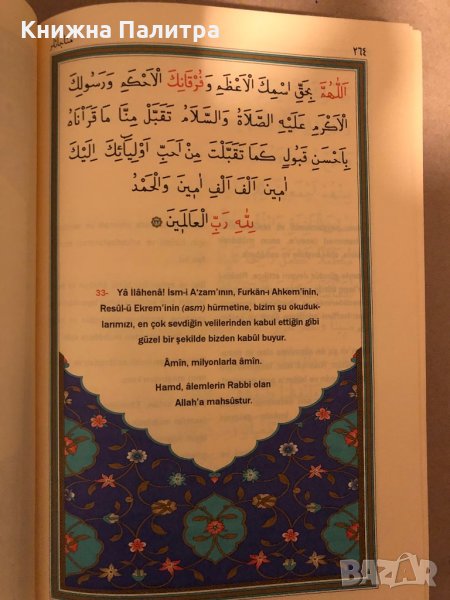 Книжна Палитра
٢٦٤
اَللّٰهُمَّ بِحَقِّ اسْمِكَ الْاَعْظَمِ وَفُرْقَانِكَ الْاَحْكَمِ وَرَسُولِكَ
الْاَكْرَمِ عَلَيْهِ الصَّلَاةُ وَالسَّلَامُ تَقَبَّلْ مِنَّا مَا قَرَأْنَاهُ
بِاَحْسَنِ قَبُولٍ كَمَا تَقَبَّلْتَ مِنْ اَحَبِّ اَوْلِيَائِكَ اِلَيْكَ
اٰمِينَ اَلْفَ اَلْفِ اٰمِينَ وَالْحَمْدُ
لِلّٰهِ رَبِّ الْعَالَمِينَ
33- Yâ İlâhenâ! İsm-i A'zam'ının, Furkân-ı Ahkem'inin,
Resûl-ü Ekrem'inin (asm) hürmetine, bizim şu okuduk-
larımızı, en çok sevdiğin velilerinden kabul ettiğin gibi
güzel bir şekilde bizden kabûl buyur.
Âmîn, milyonlarla âmîn.
Hamd, âlemlerin Rabbi olan
Allah'a mahsûstur.
BAZAR